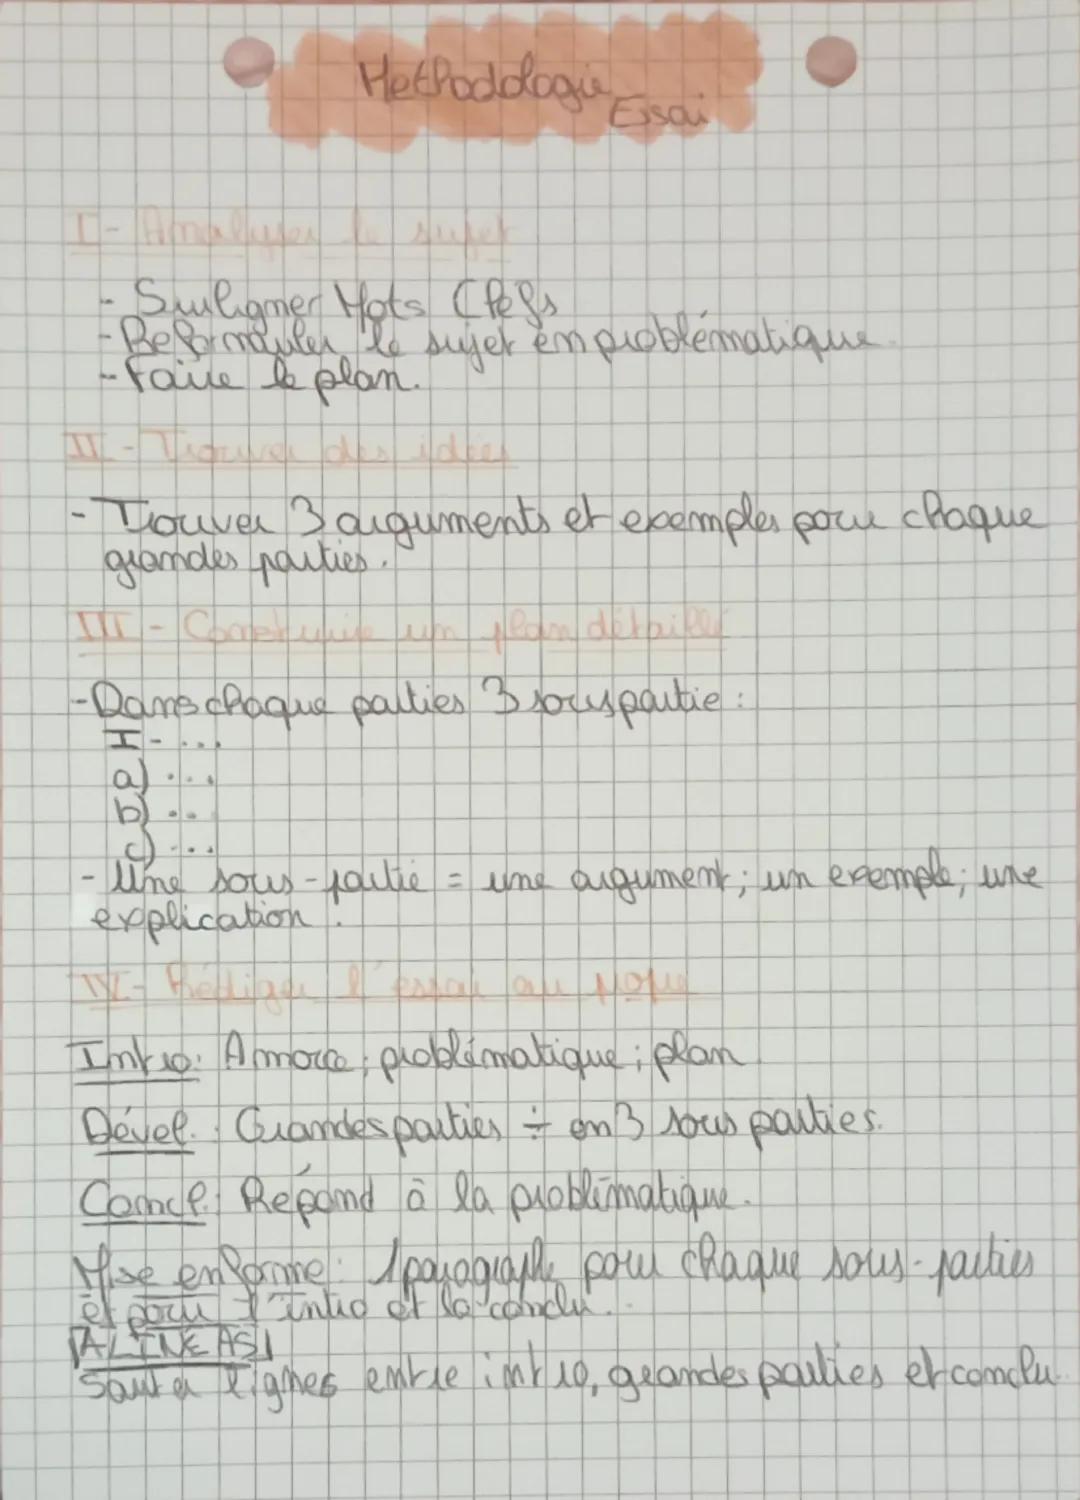 Methodologie
Essai
I- Analyser le sujet
- Souligner Mots Clefs
- Reformuler le sujet en problématique.
- Faire le plan.
II - Trouver des idées
- Trouver 3 arguments et exemples pour chaque
grandes parties.
III - Construire un plan détaillé
- Dans chaque parties 3 sous partie :
I - ...
a) ...
b) ...
c) ...
- Une sous-partie = une argument; un exemple; une
explication.
IV- Rédiger l'essai au propre
Intro: Amorce; problématique; plan
Dével.: Grandes parties ÷ en 3 sous parties.
Concl: Répond à la problématique.
Mise en forme: 1 paragraphe pour chaque sous-parties
et pour l'intro et la conclu.
|ALINEAS|
Sauter lignes entre intro, grandes parties et conclu.